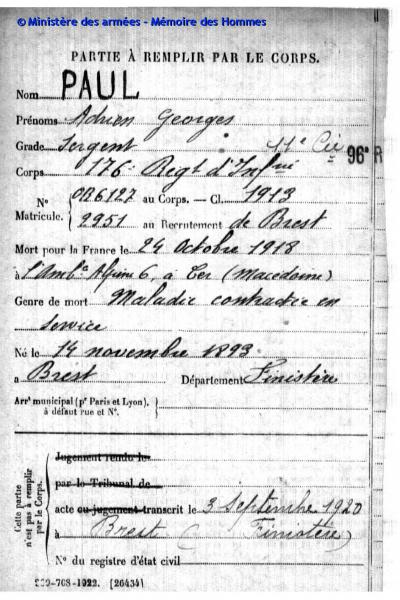 © Ministère des armées - Mémoire des Hommes
PARTIE À REMPLIR PAR LE CORPS.
Nom PAUL
Prénoms Adrien Georges
Grade Sergent 11e Cie 96e R
Corps 176e Regt d'Infrie
N° Matricule. { OR6127 au Corps. — Cl. 1913
2951 au Recrutement de Brest
Mort pour la France le 24 Octobre 1918
à l'Ambce Alpine 6, à (Macédoine)
Genre de mort Maladie contractée en
service
Né le 14 novembre 1893
à Brest Département Finistère
Arrt municipal (pr Paris et Lyon),
à défaut rue et N°.
Cette partie n'est pas à remplir par le Corps.
Jugement rendu le
par le Tribunal de
acte ou jugement transcrit le 3 Septembre 1920
à Brest (Finistère)
N° du registre d'état civil
-708-1922. [26434]